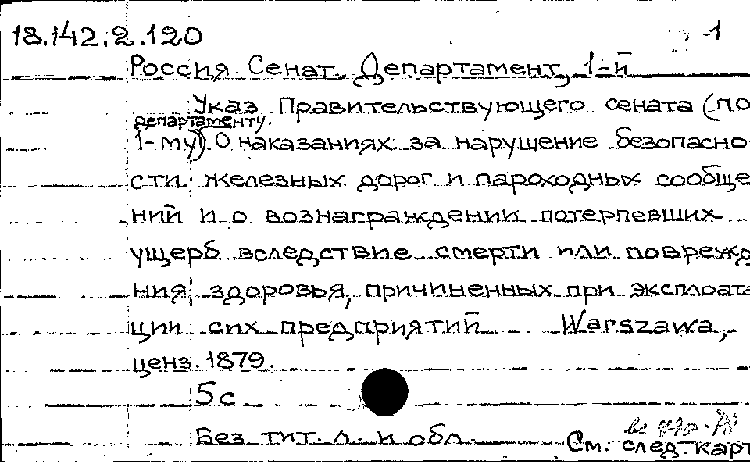 18.142.2.120
1
Россия Сенат. Департамент, 1-й
Указ Правительствующего сената (по
департаменту
1-му). О наказаниях за нарушение безопасно
сти железных дорог и пароходных сообще
ний и о вознаграждении потерпевших
ущерб вследствие смерти или поврежд
ния здоровья, причиненных при эксплоат
ции сих предприятий Warszawa,
ценз. 1879.
5с
Без тит. л. и обл.
См. след. карт